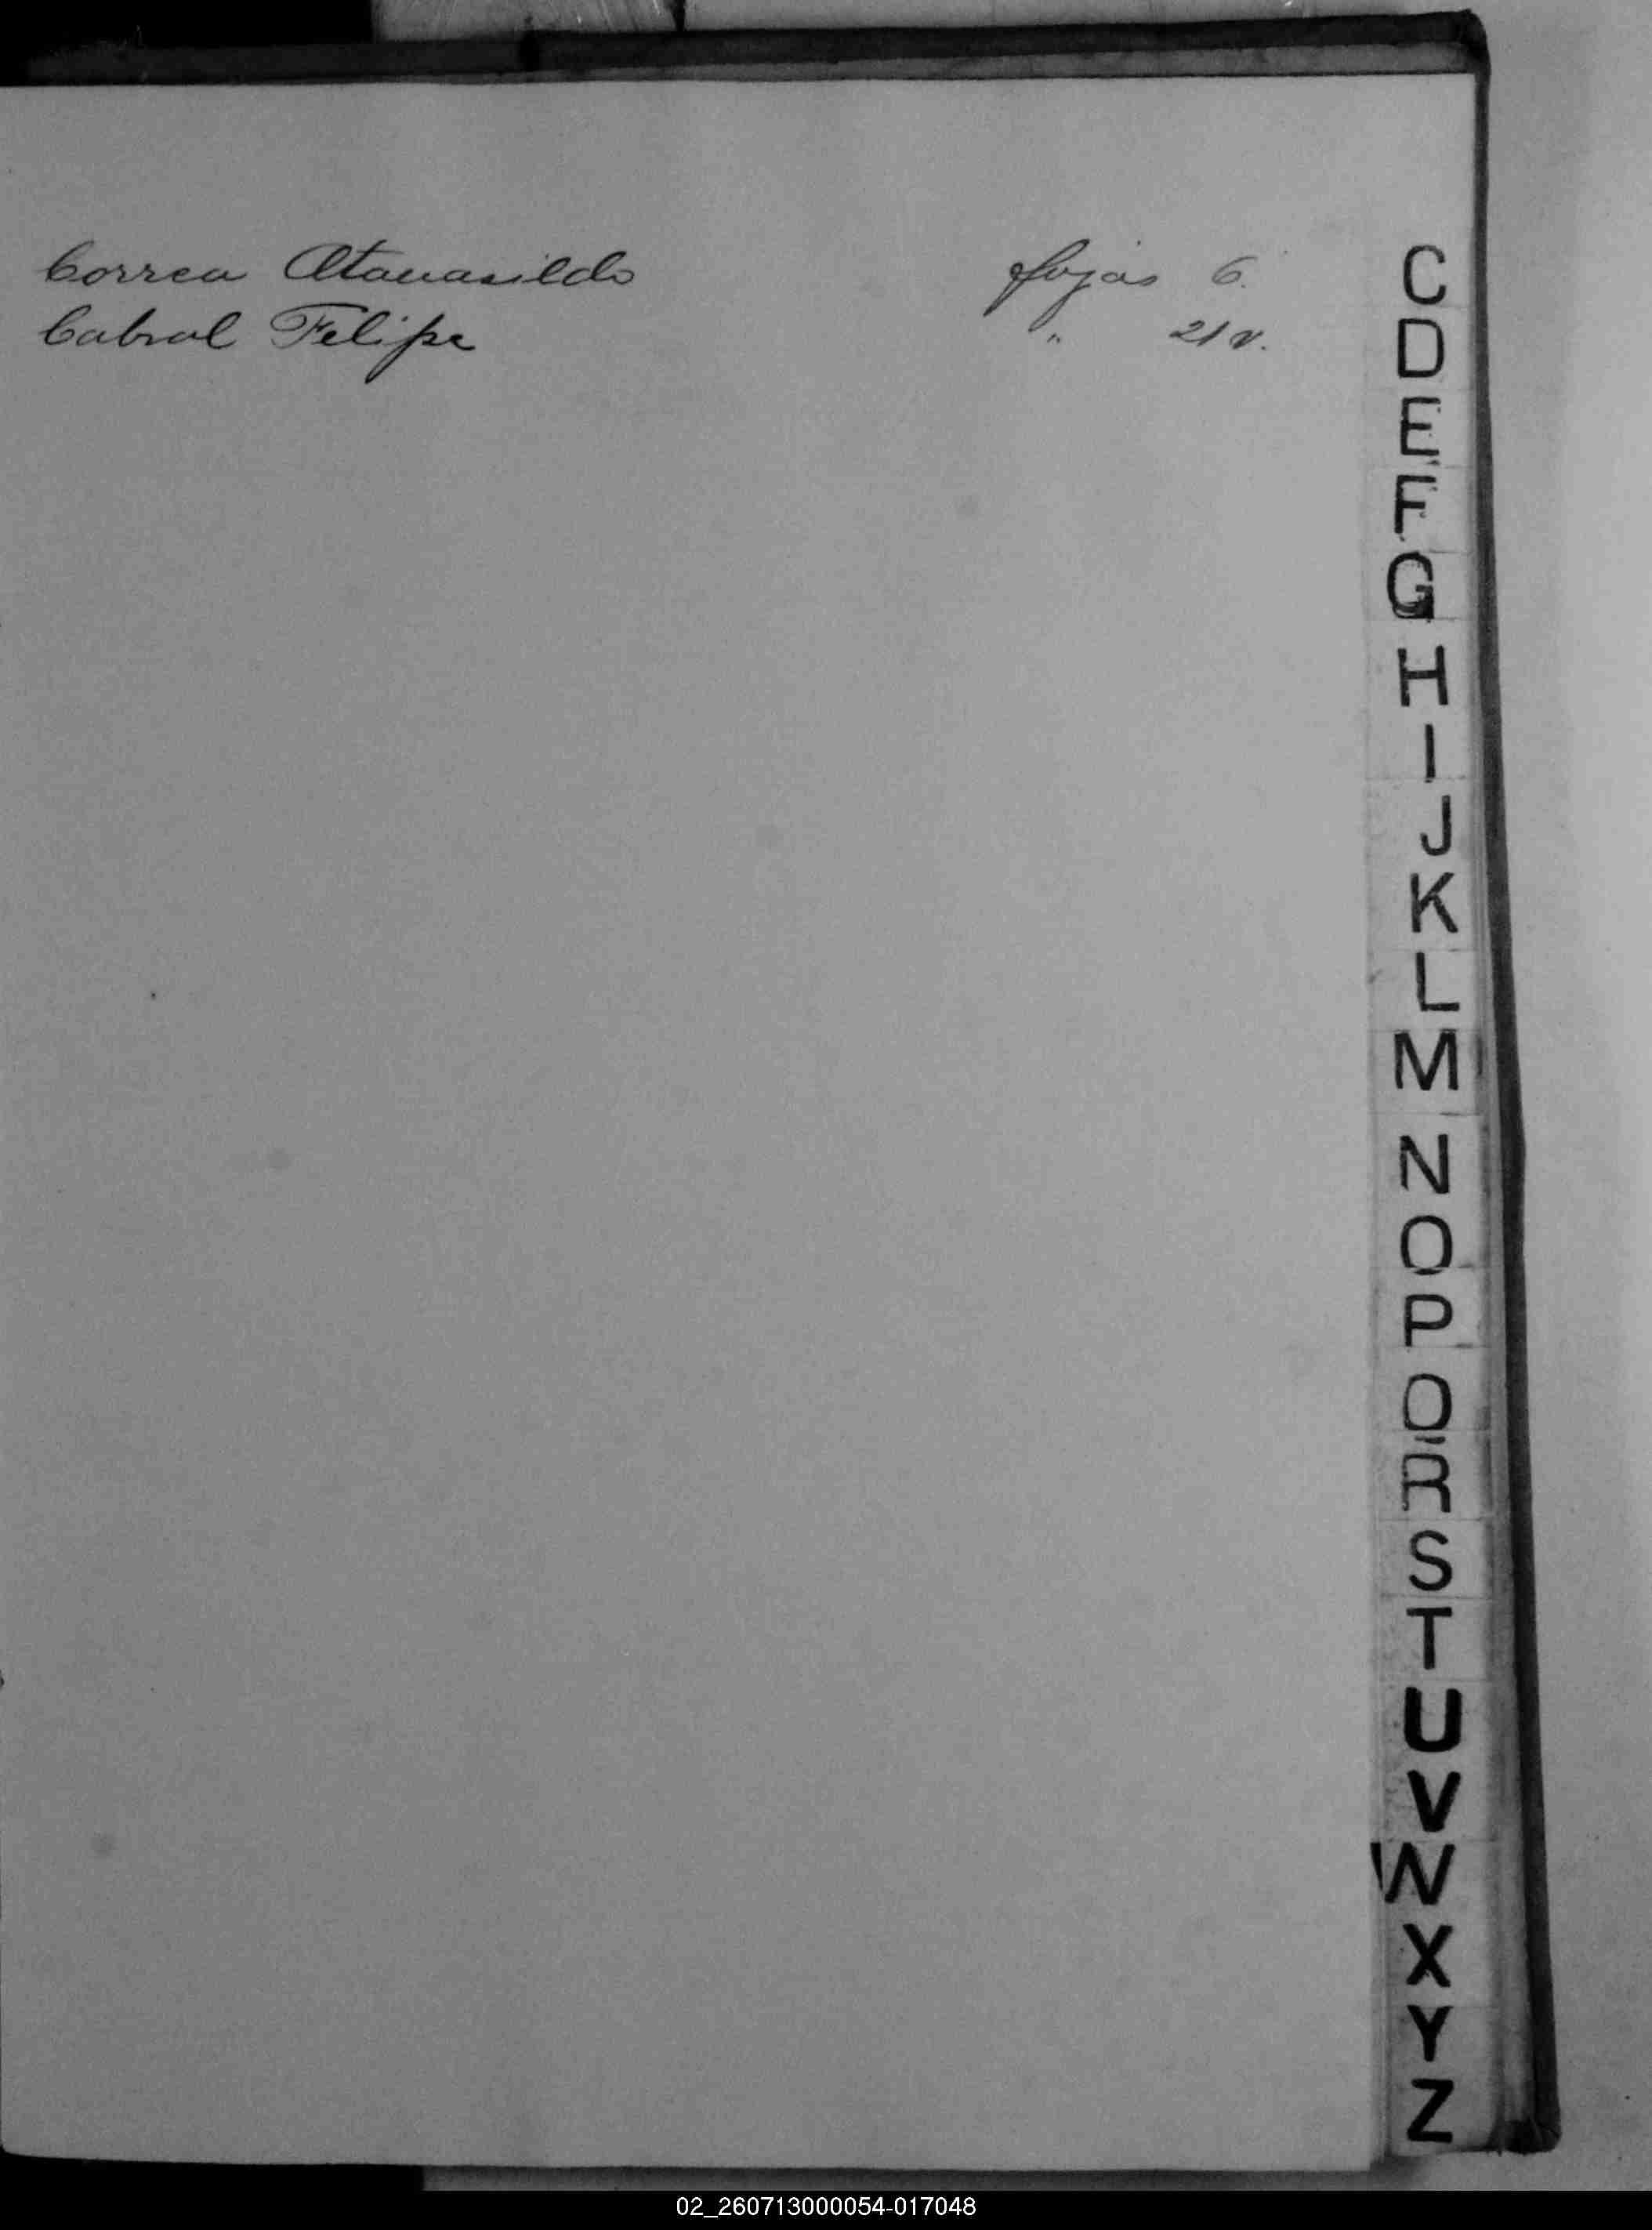 Correa Atanasildo fojas 6.
Cabral Felipe " 21 v.
C
D
E
F
G
H
I
J
K
L
M
N
O
P
Q
R
S
T
U
V
W
X
Y
Z
02_260713000054-017048